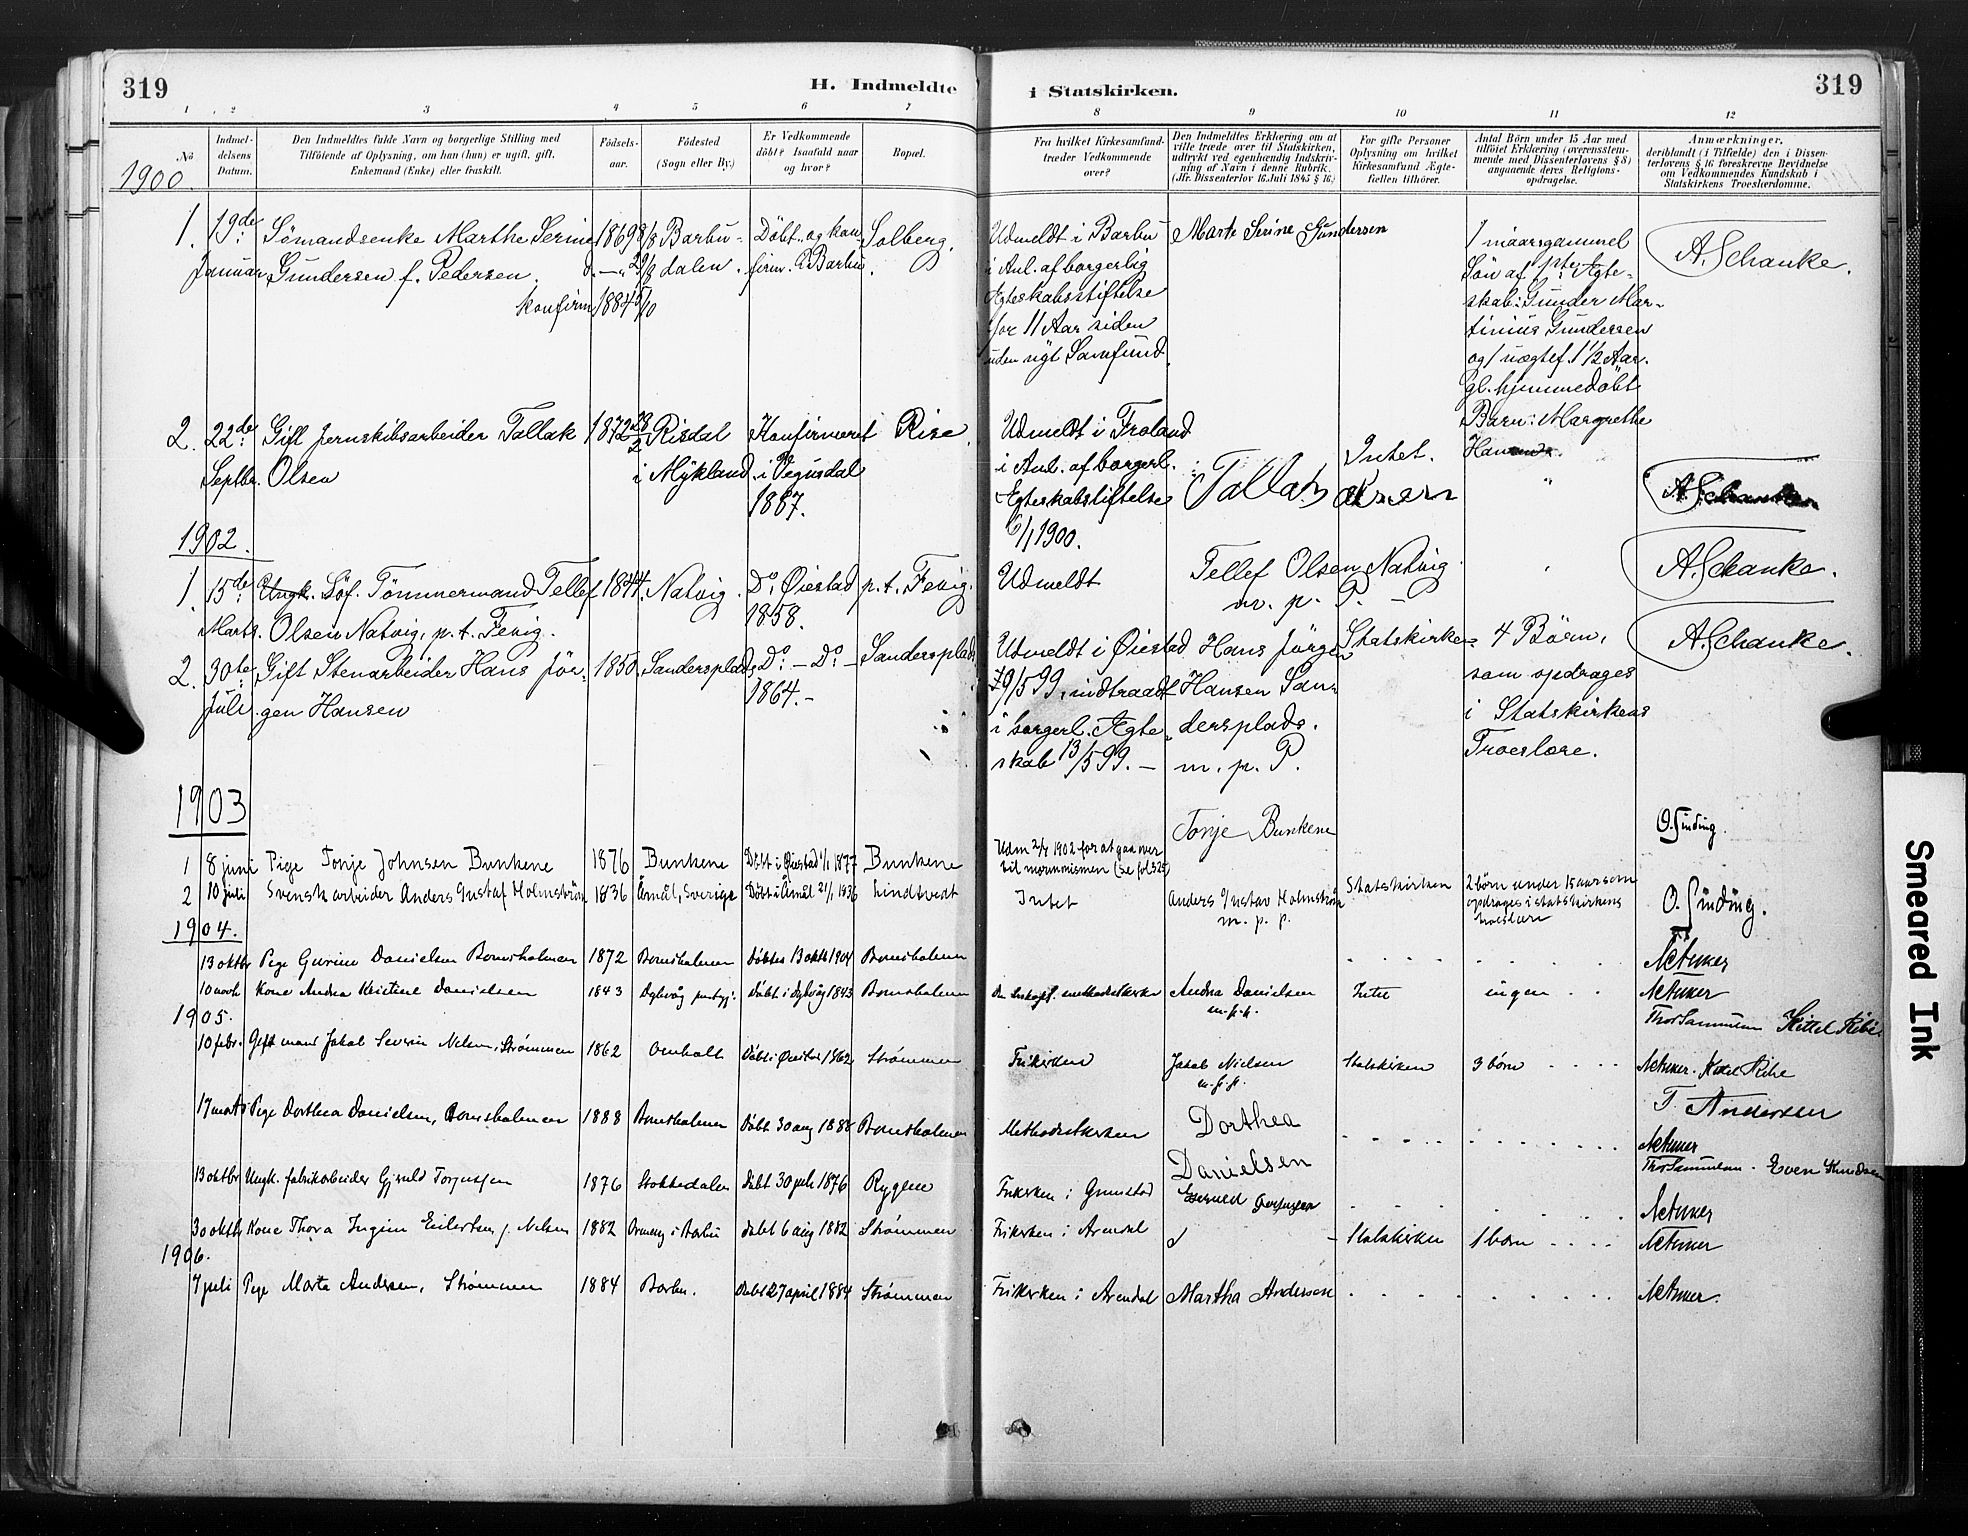 319
H. Indmeldte
i Statskirken.
319
1 2 3 4 5 6 7
8 9 10 11 12
No
Indmel-
delsens
Datum.
Den Indmeldtes fulde Navn og borgerlige Stilling med
Tilföiende af Oplysning, om han (hun) er ugift, gift,
Enkemand (Enke) eller fraskilt.
Födsels-
aar.
Födested
(Sogn eller By.)
Er Vedkommende
döbt? Isaafald naar
og hvor?
Bopæl.
Fra hvilket Kirkesamfund
træder Vedkommende
over?
Den Indmeldtes Erklæring om at
ville træde over til Statskirken,
udtrykt ved egenhændig Indskriv-
ning af Navn i denne Rubrik.
(Jfr. Dissenterlov 16. Juli 1845 § 16.)
For gifte Personer
Oplysning om hvilket
Kirkesamfund Ægte-
fællen tilhörer.
Antal Börn under 15 Aar med
tilföiet Erklæring (overensstem-
mende med Dissenterlovens § 8)
angaaende deres Religions-
opdragelse.
Anmærkninger,
deriblandt (i Tilfælde) den i Dissen-
terlovens § 16 foreskrevne Bevidnelse
om Vedkommendes Kundskab i
Statskirkens Troeslærdomme.
1900.
1. 19de Januar
Sömandsenke Marthe Serine
Gundersen f. Pedersen.
konfirm
1869 8/8
1884 5/10
Barbu-
dalen.
Döbt og kon
firm. i Barbu.
Solberg.
Udmeldt i Barbu
i Anl. af borgerlig
Ægteskabsstiftelse
for 11 Aar siden
uden nyt Samfund.
Marte Serine Gundersen
Sön af Ægte-
skab: Gunder Mar-
tinius Gundersen
og 1 uægtef. 1 1/2 Aar.
gl. hjemmedöbt
Barn: Margrethe
A. Schanke.
2. 22de Septbr.
Gift Jernskibsarbeider Tallak
Olsen
1872 28/2
Risdal
i Mykland
Konfirmeret
i Vegusdal
1887.
Rise.
Udmeldt i Froland
i Anl. af borgerl.
Ægteskabsstiftelse
6/1 1900.
Intet.
"
A. Schanke
1902.
1. 15de Marts.
Ungk. Söf. Tömmermand Tellef
Olsen Natvig, p.t. Fevig.
1844.
Natvig.
Do Øiestad
1858.
p.t. Fevig.
Udmeldt
Tellef Olsen Natvig
m. p. P.
A. Schanke.
2. 30te Juli
Gift Stenarbeider Hans Jör-
gen Hansen
1850.
Sandersplads
Do – Do –
1864.–
Sandersplads
Udmeldt i Øiestad
29/5 99, indtraadt
i borgerl. Ægte-
skab 13/5 99. –
Hans Jörgen
Hansen San-
dersplads.
m. p. P.
Statskirken
4 Börn,
som opdrages
i Statskirkens
Troeslære.
A. Schanke.
1903
1 8 juni
Pige Tonje Johnsen Bunkene
1876
Bunkene
Döbt i Øiestad 1/1 1877
Bunkene
Udm 2/4 1902 for at gaa over
til mormonismen (se fol 325)
Tonje Bunkene
O. Sinding.
2 10 juli
Svensk arbeider Anders Gustaf Holmström
1836
Åmål, Sverige
Döbt i Åmål 21/1 1836
Lindtvedt
Intet
Anders Gustav Holmström
m. p. p.
Statskirken
2 börn under 15 aar som
opdrages i statskirkens
troeslære
O. Sinding.
1904.
13 oktbr
Pige Gurine Danielsen Bomsholmen
1872
Bomsholmen
Döbtes 13 oktb 1904
Bomsholmen
10 novb
Kone Andrea Kristine Danielsen
1843
Dybvåg
Döbt i Dybvåg 1843
Bomsholmen
Andrea Danielsen
m.p.p.
Intet
ingen
1905.
10 febr.
Gift mand Jakob Severin Nielsen, Strømmen
1862
Omholt
Döbt i Øiestad 1862
Strømmen
Frikirken
Jakob Nielsen
m.p.p.
Statskirken
3 börn
17 marts
Pige Dorthea Danielsen, Bomsholmen
1888
Bomsholmen
Döbt 30 aug 1888
Bomsholmen
Methodistkirken
Dorthea
Danielsen
T. Andersen
13 oktbr
Ungk. fabrikarbeider Gjeruld Torjussen
1876
Stokkedalen
Döbt 30 juli 1876
Rygene
Frikirken i Grimstad
Even Knudsen
30 oktbr
Kone Thora Ingine Eilertsen f. Nilsen
1882
i Barbu
Döbt 6 aug 1882
Strømmen
Frikirken i Arendal
Statskirken
1 barn
1906.
7 juli
Pige Marta Andersen, Strømmen
1884
Barbu.
Döbt 27 april 1884
Strømmen
Frikirken i Arendal
Martha Andersen
Smeared Ink